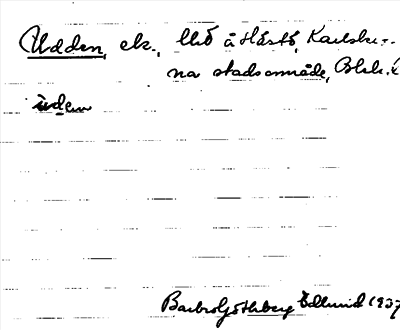 Udden, ek., Utö å Hästö, Karlskro-
na stadsområde, Blek. l
ùden
Barbro Götberg Edlund 1937